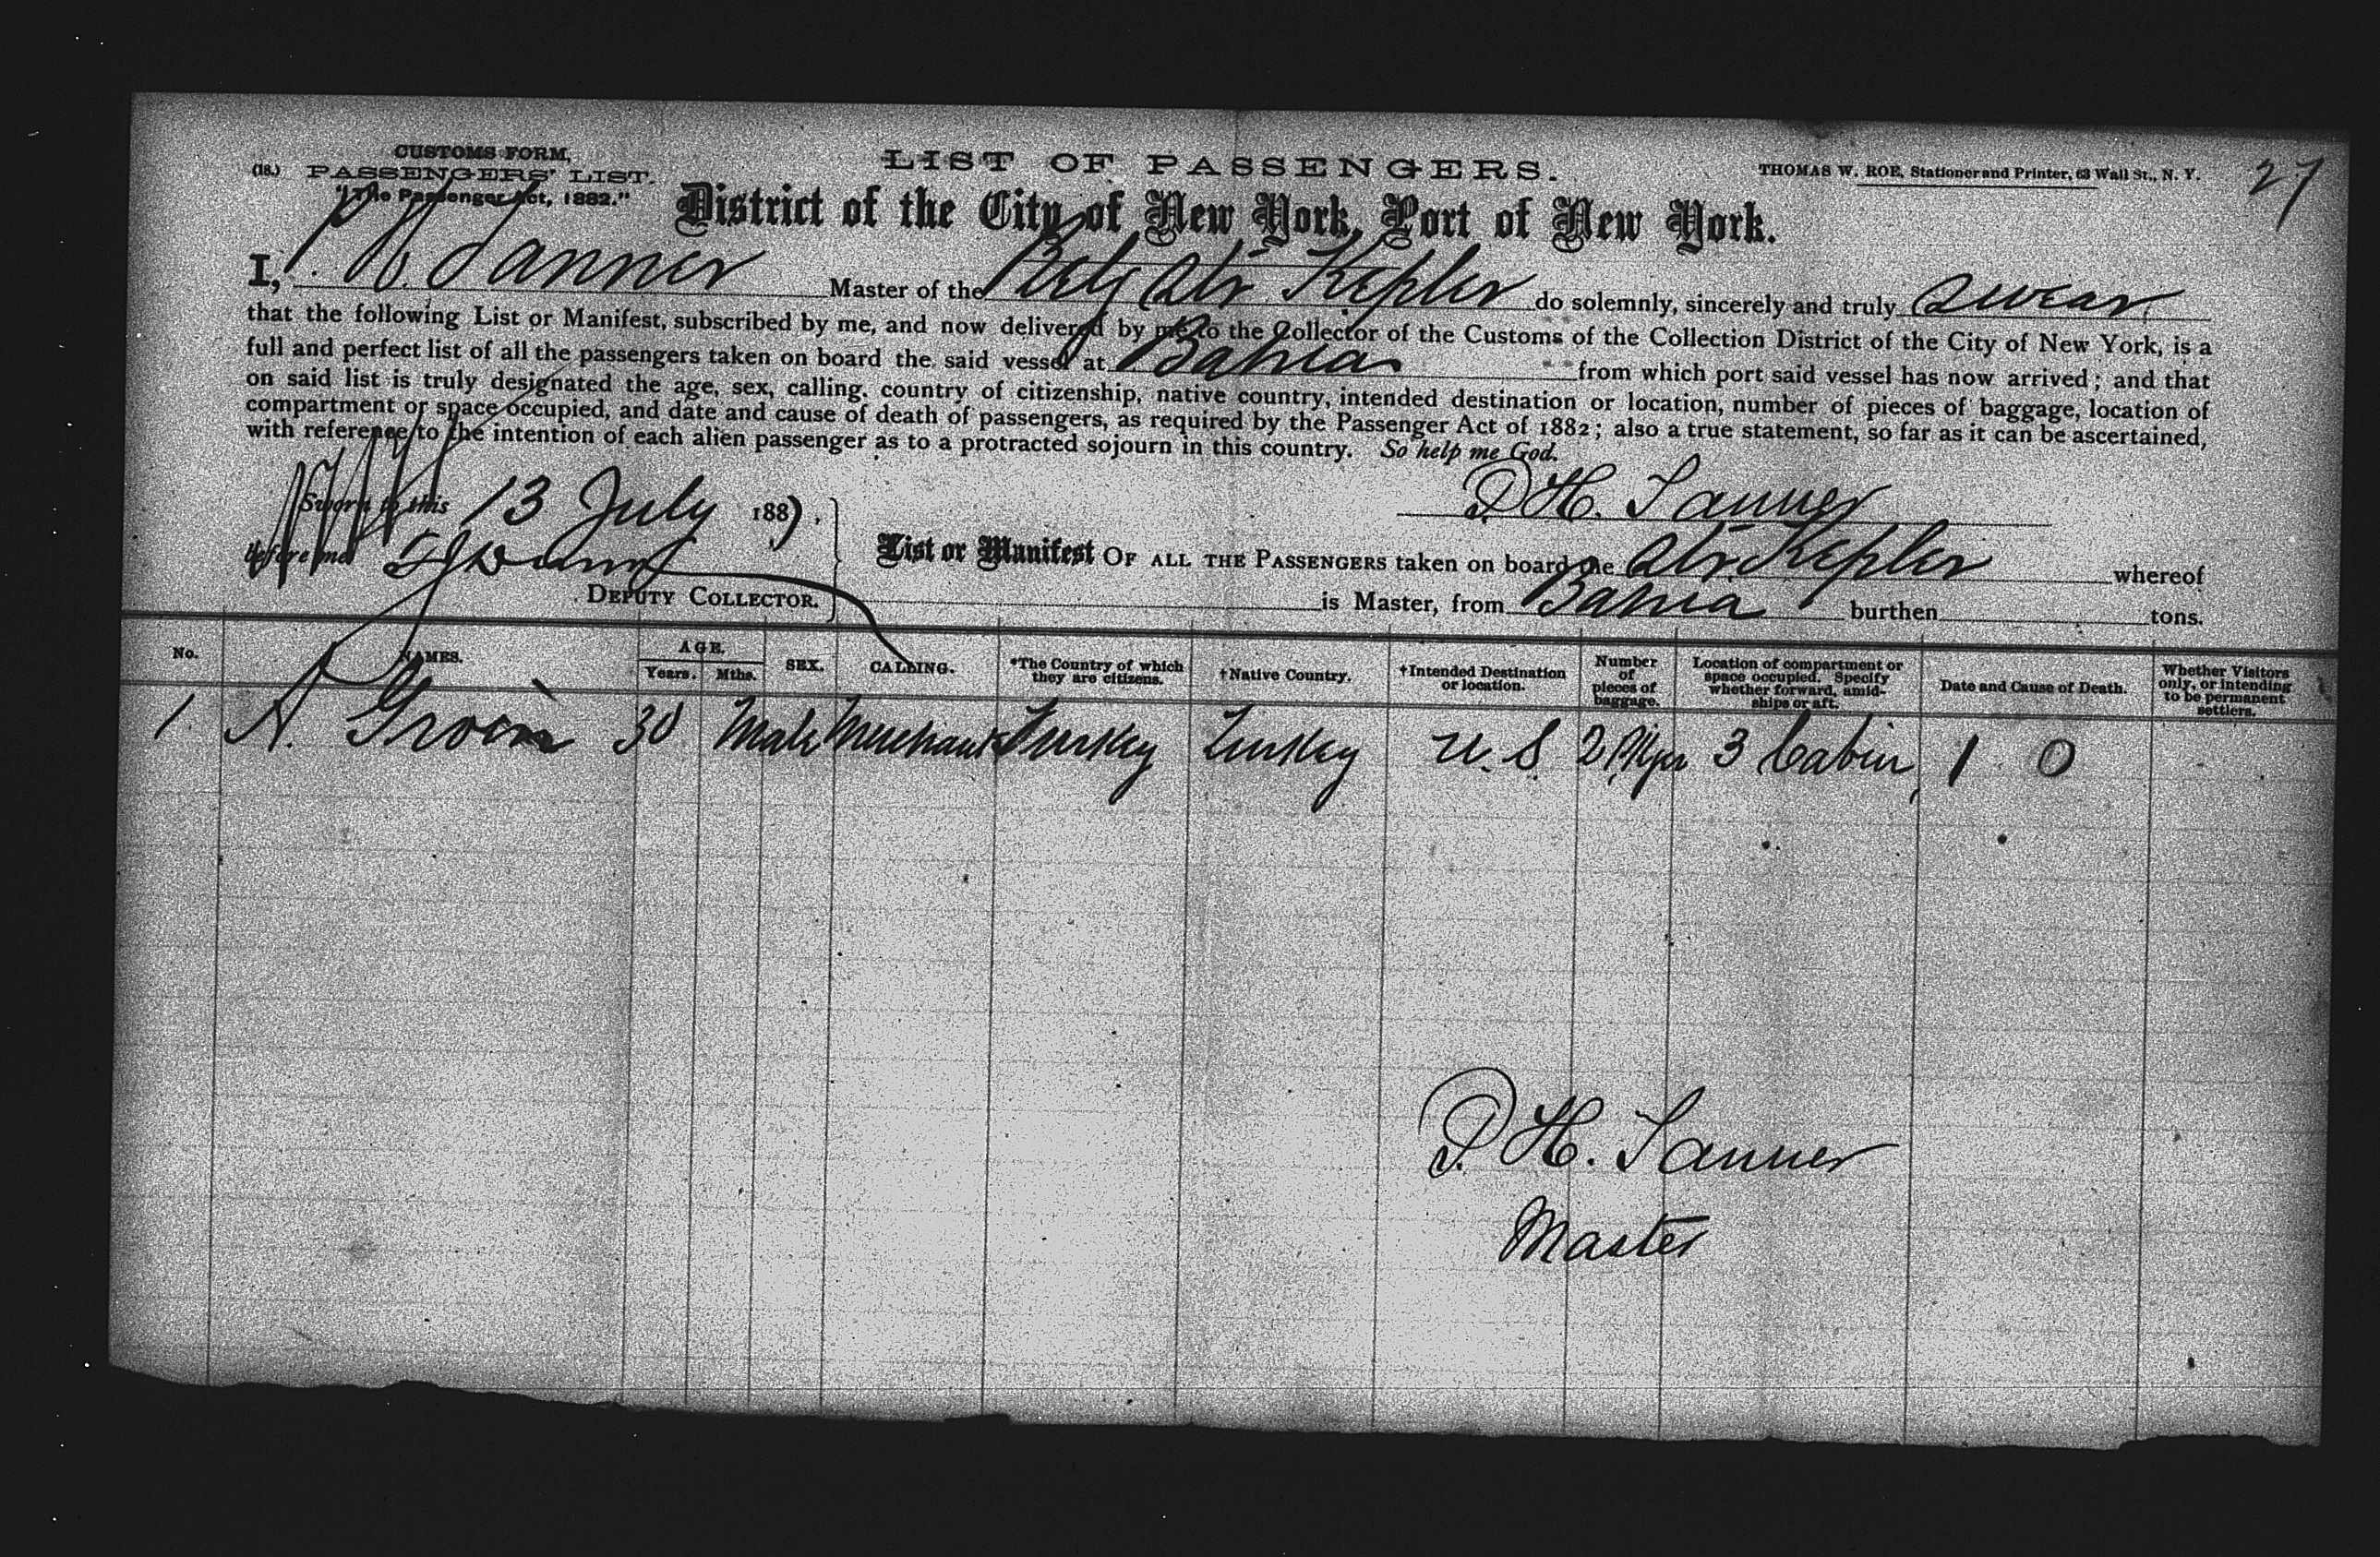 CUSTOMS FORM,
(18.) PASSENGERS' LIST.
"The Passenger Act, 1882."
LIST OF PASSENGERS.
THOMAS W. ROE, Stationer and Printer, 63 Wall St., N. Y.
27
District of the City of New York, Port of New York.
I, P. H. Sanner Master of the Belg Str Kepler do solemnly, sincerely and truly swear
that the following List or Manifest, subscribed by me, and now delivered by me to the Collector of the Customs of the Collection District of the City of New York, is a
full and perfect list of all the passengers taken on board the said vessel at Bahia from which port said vessel has now arrived; and that
on said list is truly designated the age, sex, calling, country of citizenship, native country, intended destination or location, number of pieces of baggage, location of
compartment or space occupied, and date and cause of death of passengers, as required by the Passenger Act of 1882; also a true statement, so far as it can be ascertained,
with reference to the intention of each alien passenger as to a protracted sojourn in this country. So help me God.
Sworn to this 13 July 1887.
P. H. Sanner
before me
DEPUTY COLLECTOR.
List or Manifest OF ALL THE PASSENGERS taken on board the Str. Kepler whereof
is Master, from Bahia burthen tons.
No. NAMES. AGE. Years. Mths. SEX. CALLING. *The Country of which they are citizens. †Native Country. †Intended Destination or location. Number of pieces of baggage. Location of compartment or space occupied. Specify whether forward, amidships or aft. Date and Cause of Death. Whether Visitors only, or intending to be permanent settlers.
1. A. 30 Male Merchant Turkey Turkey U. S. 2 3 Cabin 1 0
P. H. Sanner
Master